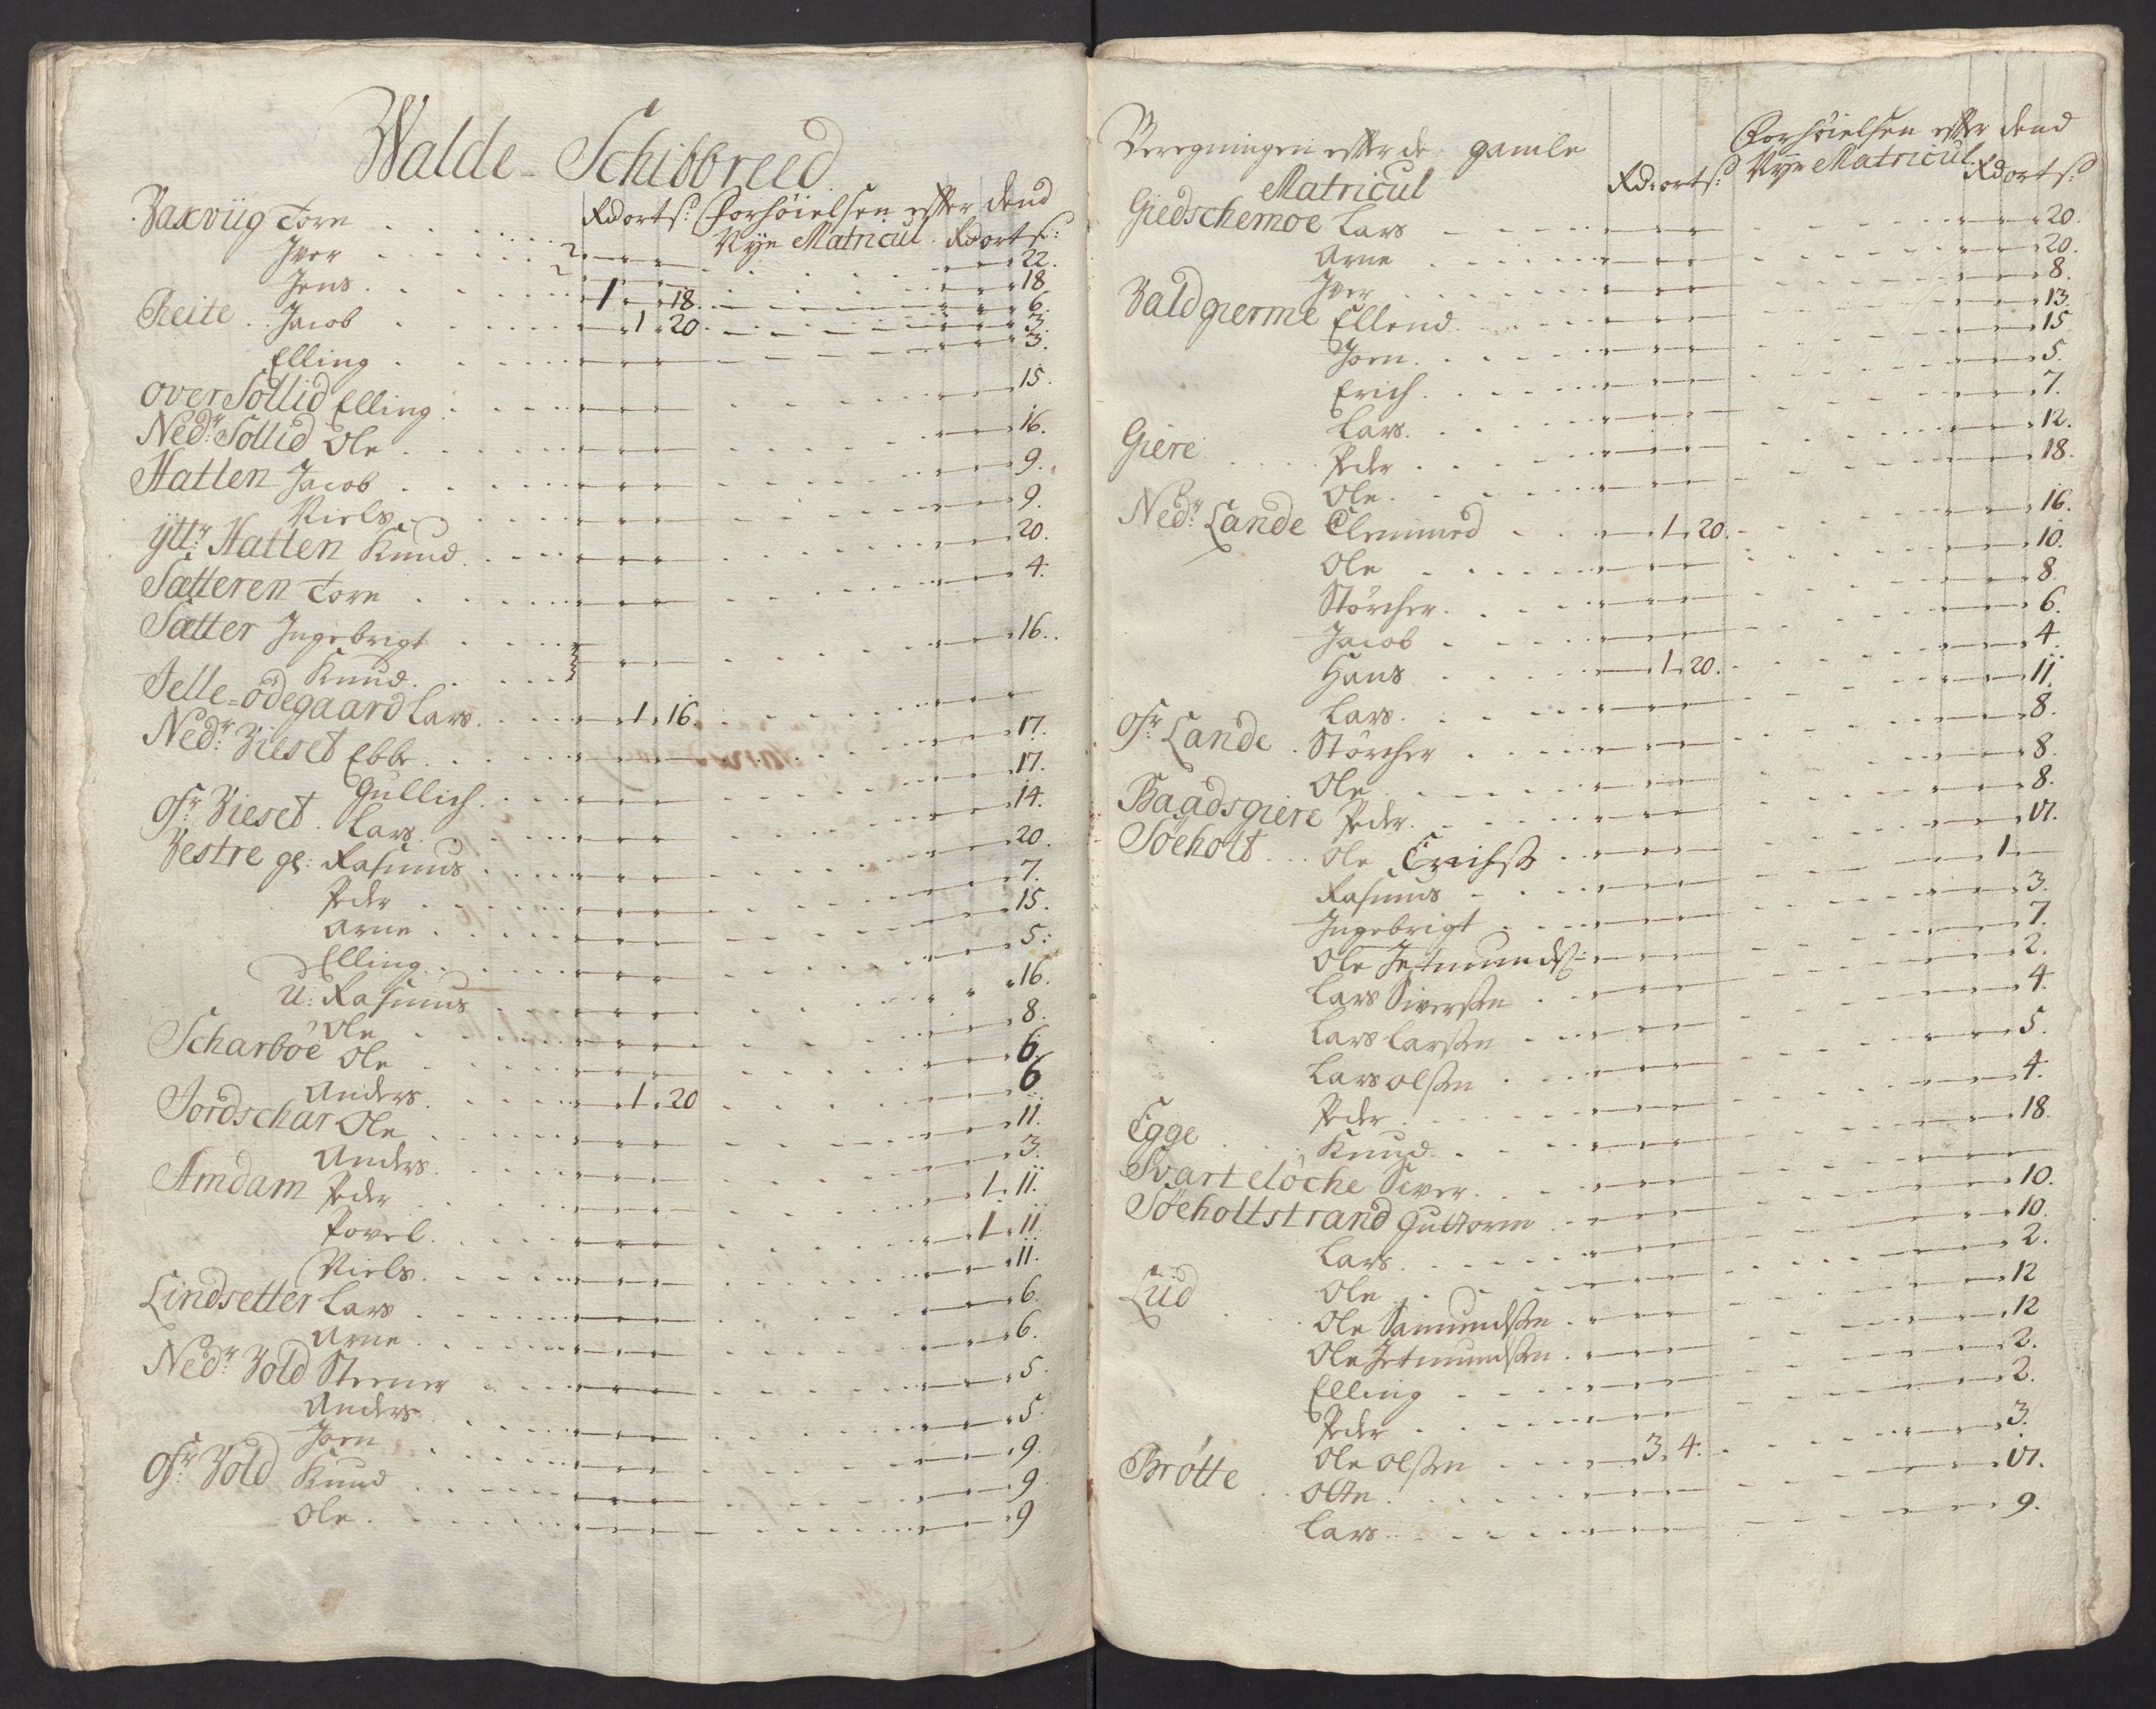 Walde-Schibbreed
Rd ort s: Forhöielsen effter dend
Nÿe Matricul. Rd ort s:
Vaxviig Tore 22.
Iver 18
Jens. 1 18. 6.
Reite. Jacob 1 20. 3.
Elling 3.
over Sollid Elling. 15.
Nedr: Sollid Ole 16.
Hatlen Jacob 9.
Niels 9.
ÿttr: Hatlen Knud. 20.
Sætteren Tore 4.
Sætter Ingebrigt 16.
Knud.
Selle-ödegaard Lars. 1. 16.
Nedr: Vieset Ebbe. 17.
Gullich. 17.
Ofr: Vieset. Lars. 14.
Vestre ge: Rasmus 20.
Peder 7.
Arne 15.
Elling. 5:
U: Rasmus 16.
Ole 8.
Scharböe Ole 6.
Anders. 1. 20 6
Jordschar Ole 11.
Anders. 3.
Amdam Peder 1. 11.
Povel. 1. 11.
Niels. 11.
Lindsetter Lars 6.
Arne 6.
Nedr: Vold Steener 5.
Anders 5.
Joen 9.
Ofr: Vold Knud 9.
Ole. 9
Beregningen effter de gamle
Matricul
Rd: ort s:
Forhöielsen effter dend
Nÿe Matricul. Rd ort s:
Giedschemoe Lars 20.
Arne 20.
Iver 8.
Valdgierme Ellend. 13.
Joen. 15.
Erich. 5.
Lars. 7.
Giere Peder 12.
Ole. 18.
Nedr: Lande Clemmed 1. 20. 16.
Ole 10.
Störcher. 8.
Jacob 6.
Hans 1. 20. 4.
Lars. 11.
Ofr: Lande. Störcher 8.
Ole 8.
Baadsgiere Peder. 8.
Söeholt Ole Erichss 17.
Rasmus 1
Ingebrigt 3.
Ole Jetmundss: 7.
Lars Siversen 2.
Lars Larsen 4.
Lars olsen 5.
Peder 4.
Egge Knud. 18.
Svartelöche Siver.
Söeholtstrand Guttorm 10.
Lars. 10.
Ole 2.
Lüd Ole Samundsen 12
Ole Jetmundsen 12
Elling 2.
Peder 2.
Ole olsen 3. 4. 3.
Brötte Otte. 17.
Lars. 9.